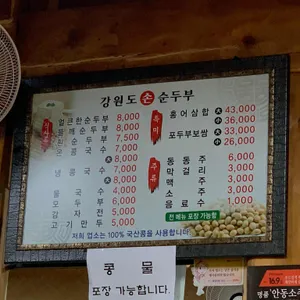 강원도 손 순두부
얼큰한순두부 8,000
들깨순두부 8,000
순두부 7,500
콩국수 7,000
大 8,000
냉콩국수 7,000
大 8,000
물국수 4,000
모두부 6,000
감자전 5,000
고기만두 5,000
별미
홍어삼합 大 43,000
小 36,000
포두부보쌈 大 33,000
小 26,000
주류
동동주 6,000
막걸리 3,000
맥주 3,000
소주 3,000
음료수 1,000
전 메뉴 포장 가능함
저희 업소는 100% 국산콩을 사용합니다
콩물
포장 가능합니다.
16.9
명품 '안동소주